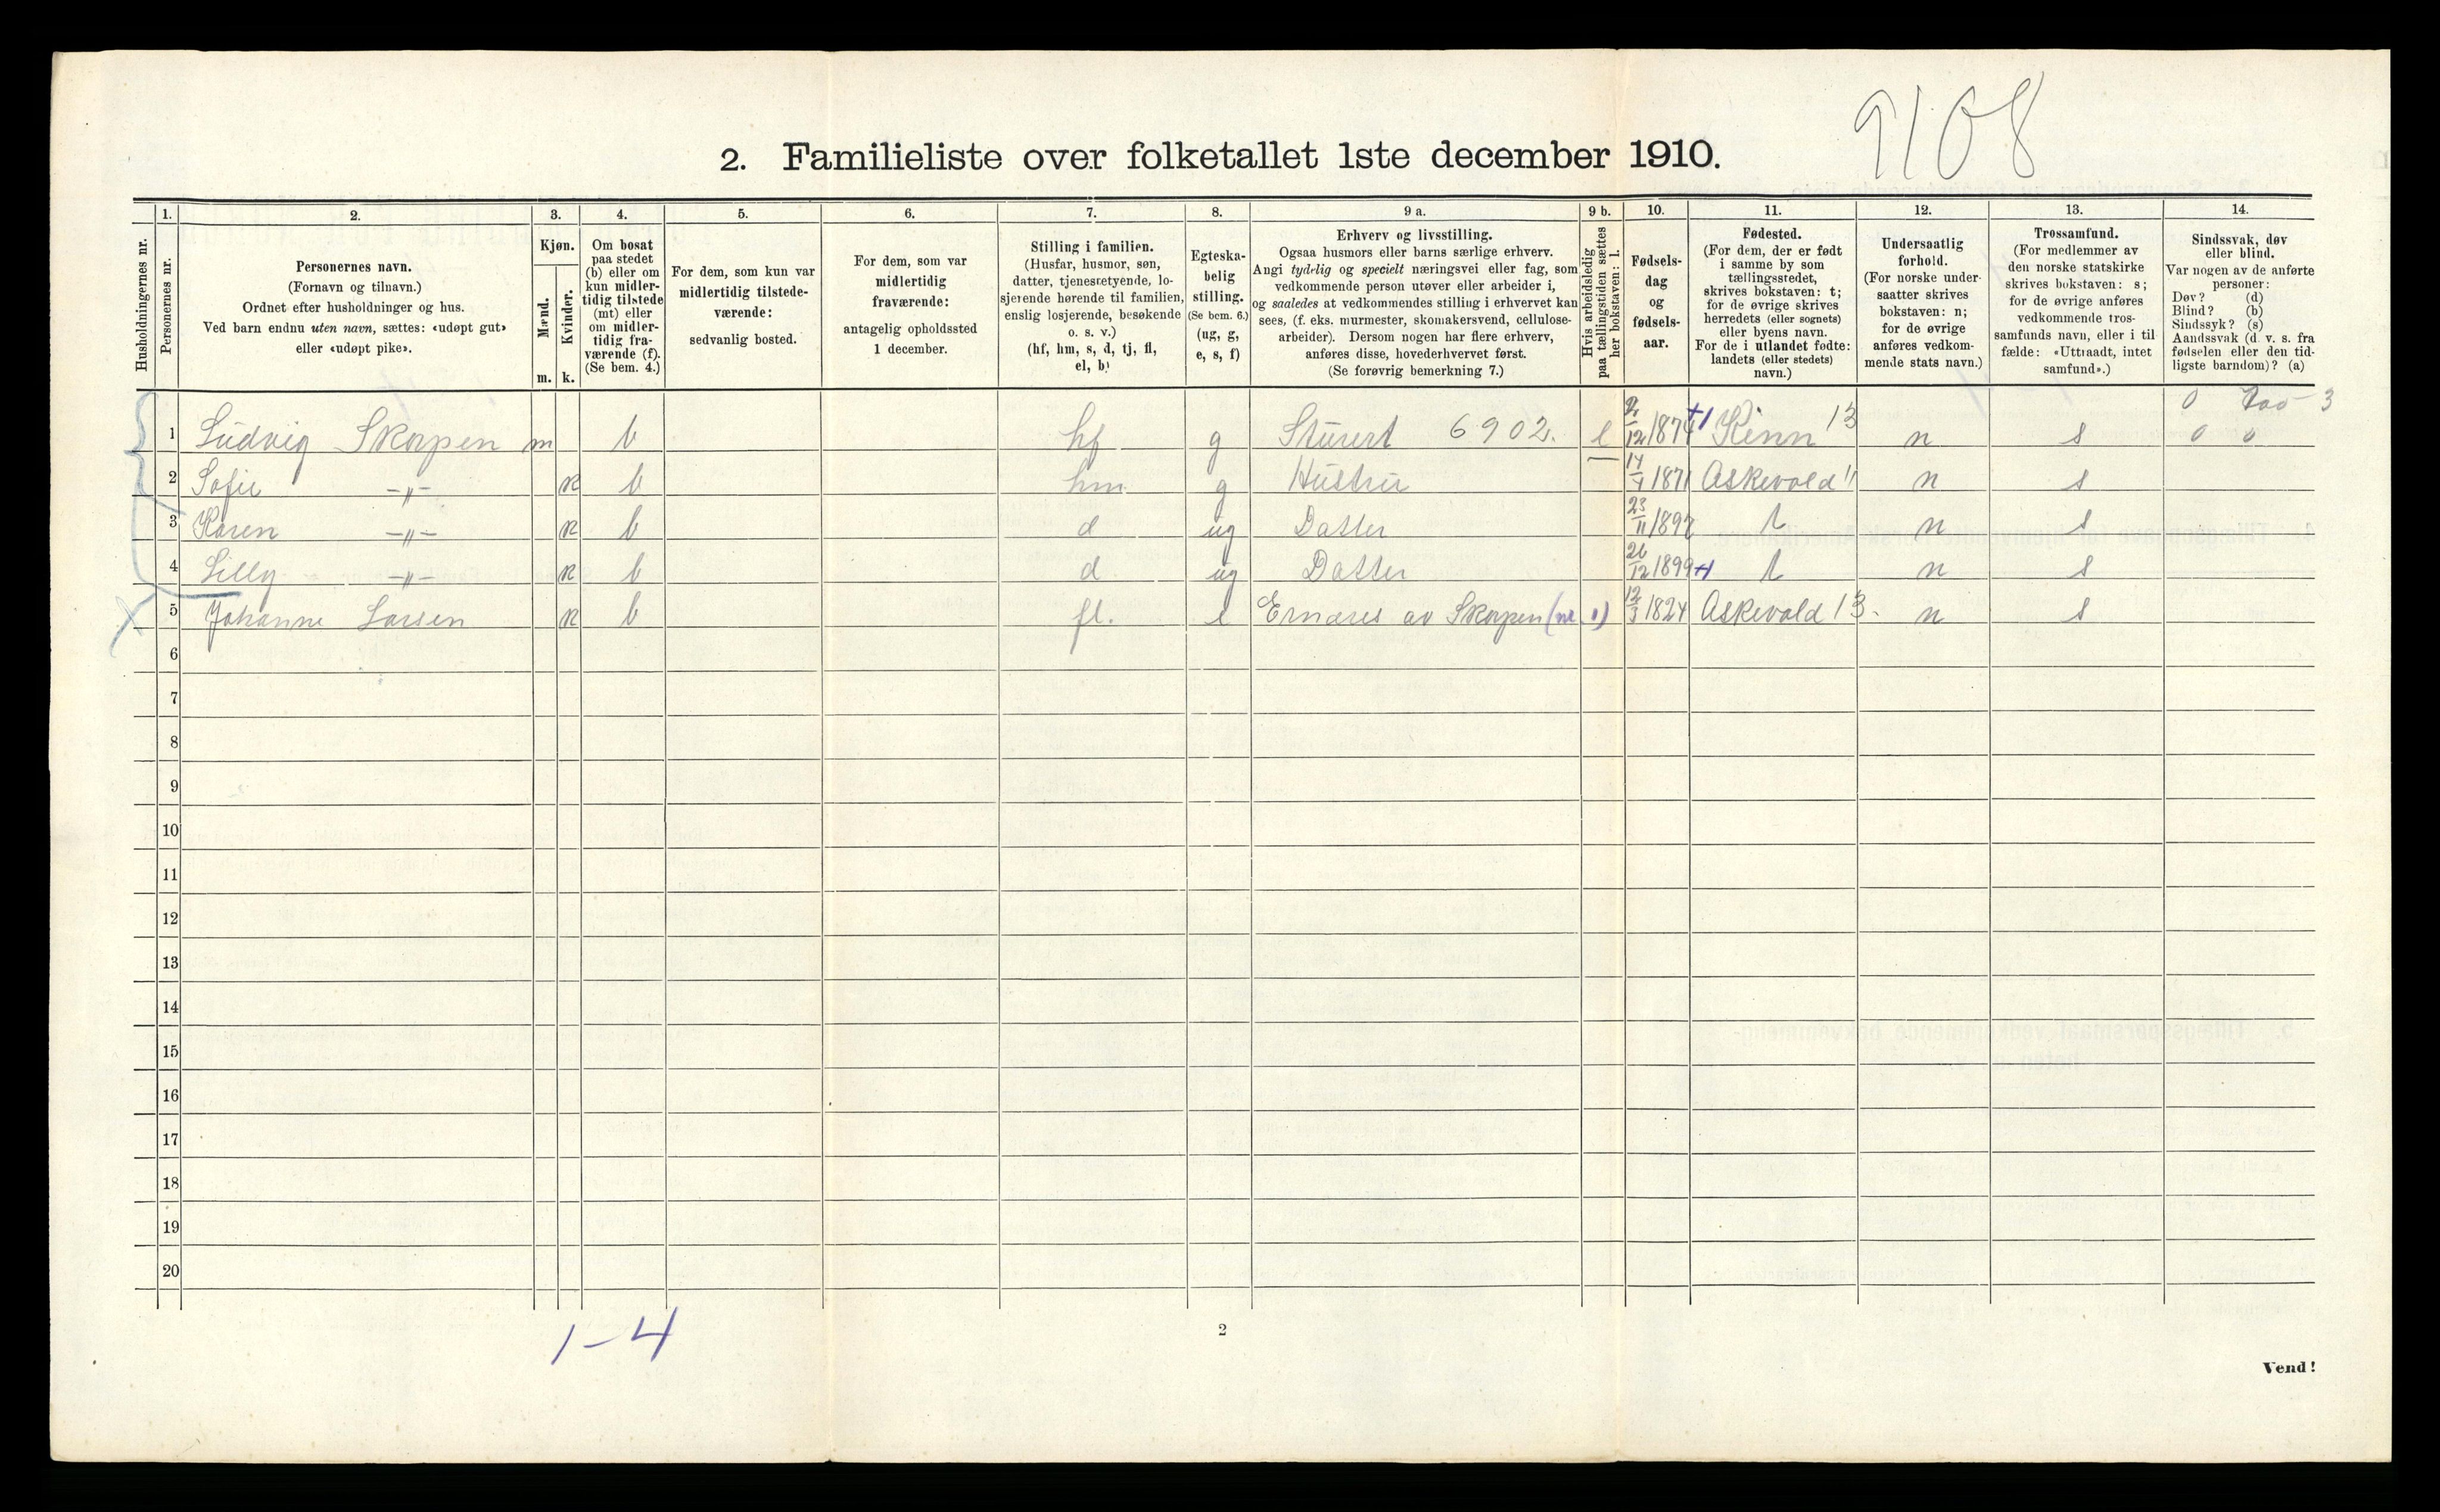 9108
2. Familieliste over folketallet 1ste december 1910.
Husholdningernes nr.
1.
Personernes nr.
2.
Personernes navn.
(Fornavn og tilnavn.)
Ordnet efter husholdninger og hus.
Ved barn endnu uten navn, sættes: «udøpt gut»
eller «udøpt pike».
3.
Kjøn.
Mænd.
m.
Kvinder.
k.
4.
Om bosat
paa stedet
(b) eller om
kun midler-
tidig tilstede
(mt) eller
om midler-
tidig fra-
værende (f).
(Se bem. 4.)
5.
For dem, som kun var
midlertidig tilstede-
værende:
sedvanlig bosted.
6.
For dem, som var
midlertidig
fraværende:
antagelig opholdssted
1 december.
7.
Stilling i familien.
(Husfar, husmor, søn,
datter, tjenestetyende, lo-
sjerende hørende til familien,
enslig losjerende, besøkende
o. s. v.)
(hf, hm, s, d, tj, fl,
el, b)
8.
Egteska-
belig
stilling.
(Se bem. 6.)
(ug, g,
e, s, f)
9 a.
Erhverv og livsstilling.
Ogsaa husmors eller barns særlige erhverv.
Angi tydelig og specielt næringsvei eller fag, som
vedkommende person utøver eller arbeider i,
og saaledes at vedkommendes stilling i erhvervet kan
sees, (f. eks. murmester, skomakersvend, cellulose-
arbeider). Dersom nogen har flere erhverv,
anføres disse, hovederhvervet først.
(Se forøvrig bemerkning 7.)
9 b.
Hvis arbeidsledig
paa tællingstiden sættes
her bokstaven: l.
10.
Fødsels-
dag
og
fødsels-
aar.
11.
Fødested.
(For dem, der er født
i samme by som
tællingsstedet,
skrives bokstaven: t;
for de øvrige skrives
herredets (eller sognets)
eller byens navn.
For de i utlandet fødte:
landets (eller stedets)
navn.)
12.
Undersaatlig
forhold.
(For norske under-
saatter skrives
bokstaven: n;
for de øvrige
anføres vedkom-
mende stats navn.)
13.
Trossamfund.
(For medlemmer av
den norske statskirke
skrives bokstaven: s;
for de øvrige anføres
vedkommende tros-
samfunds navn, eller i til-
fælde: «Uttraadt, intet
samfund».)
14.
Sindssvak, døv
eller blind.
Var nogen av de anførte
personer:
Døv? (d)
Blind? (b)
Sindssyk? (s)
Aandssvak (d. v. s. fra
fødselen eller den tid-
ligste barndom)? (a)
1 Ludvig Skorpen m b hf g Stuert 6902. l 2/12 1874 +1 Kinn 13 n s 0 0
2 Sofie -„- k b hm g Hustru 14/4 1871 Askevold " n s
3 Karen -„- k b d ug Datter 23/11 1897 t n s
4 Lilly -„- k b d ug Datter 26/12 1899 +1 t n s
5 Johanne Larsen k b fl. e Ernæres av Skorpen (nr. 1) 12/3 1824 Askevold 13. n s
6
7
8
9
10
11
12
13
14
15
16
17
18
19
20
1-4
2
Vend!